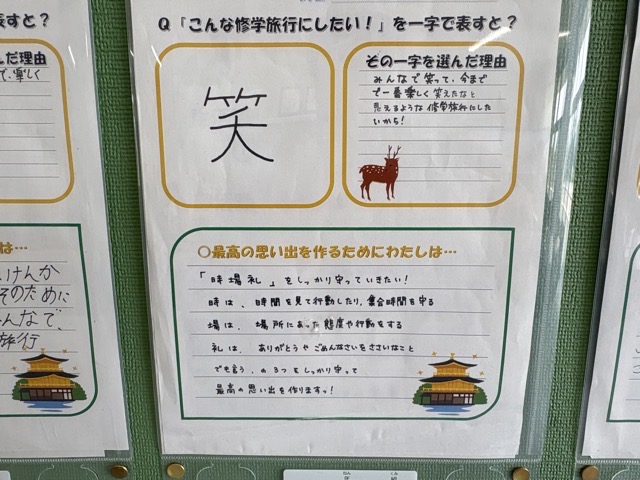 表すと？
んだ理由
で、楽しく
は…
、けんか
そのために
んなで、
旅行
Q『こんな修学旅行にしたい！』を一字で表すと？
笑
その一字を選んだ理由
みんなで笑って、今まで
で一番楽しく笑えたなと
思えるような修学旅行にした
いから！
○最高の思い出を作るためにわたしは…
「時場礼」をしっかり守っていきたい！
時は、時間を見て行動したり、集合時間を守る
場は、場所にあった態度や行動をする
礼は、ありがとうやごめんなさいをささいなこと
でも言う。の3つをしっかり守って
最高の思い出を作りますッ！